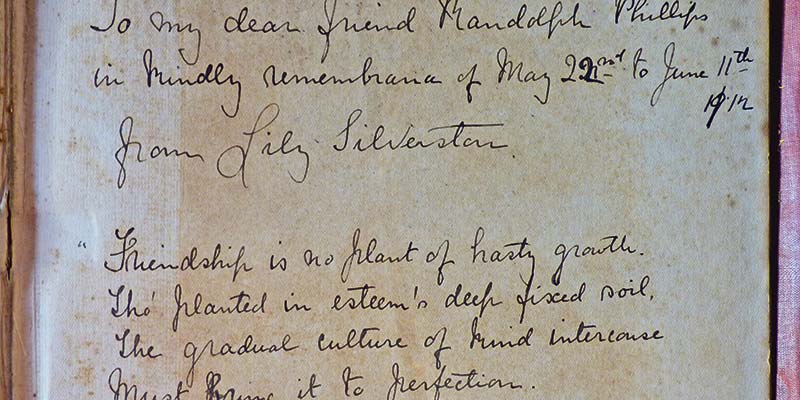 To my dear friend Randolph Phillips
in kindly remembrance of May 22nd to June 11th
1912
from Lily Silverston.
"Friendship is no plant of hasty growth.
Tho' planted in esteem's deep fixed soil,
The gradual culture of kind intercouse
Must bring it to perfection.